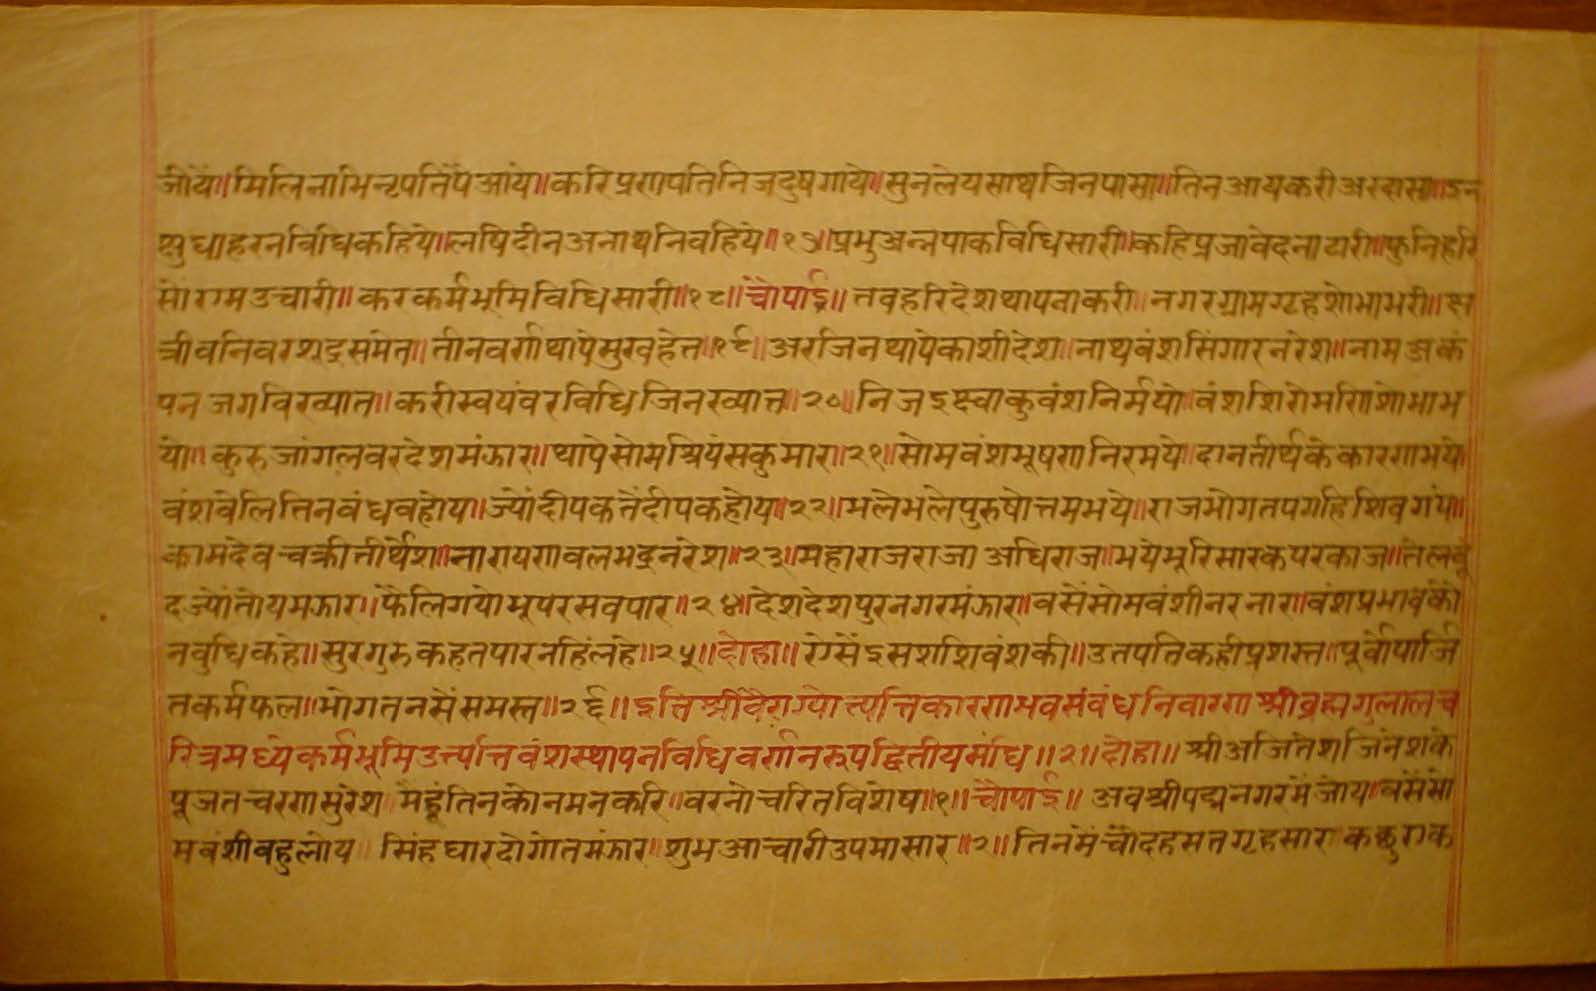 जीयें॥ मिलि नाभि नृपति पें आये॥ करि प्रणपति निज दुष गाये॥ सुन लेय साथ जिन पासा॥ तिन आय करी अरदासा॥ इन
क्षुधा हरन विधि कहिये॥ लषि दीन अनाथ निवहिये॥१७॥ प्रभु अन्न पाक विधि सारी॥ कहि प्रजा वेदना टारी॥ फुनि हरि
सों रम्म उचारी॥ कर कर्म भूमि विधि सारी॥१८॥ चौपाई॥ तव हरि देश थापना करी॥ नगर ग्राम गृह शोभा भरी॥ क्ष
त्री वनिवर शूद्र समेत॥ तीन वर्ण थापे सुख हेत॥१९॥ अर जिन थापे काशी देश॥ नाथ वंश सिंगार नरेश॥ नाम अकं
पन जग विख्यात॥ करी स्वयंवर विधि जिन ख्यात॥२०॥ निज इक्ष्वाकु वंश निर्मयो॥ वंश शिरोमणि शोभा भ
यो॥ कुरु जांगल वर देश मंझार॥ थापे सोम श्रियंस कुमार॥२१॥ सोम वंश भूषण निरमये॥ दान तीर्थ के कारण भये
वंश वेलि तिन वंधव होय॥ ज्यों दीपक तें दीपक होय॥२२॥ भले भले पुरुषोत्तम भये॥ राज भोग तप गहि शिव गये॥
कामदेव चक्री तीर्थेश॥ नारायण वलभद्र नरेश॥२३॥ महाराज राजा अधिराज॥ भये भूरि सारक पर काज॥ तेल वूं
द ज्यों तोय मझार॥ फैलि गयो भू पर सव पार॥२४॥ देश देश पुर नगर मंझार॥ वसें सोम वंशी नर नार॥ वंश प्रभाव को
न वुधि कहे॥ सुर गुरु कहत पार नहिं लहे॥२५॥ दोहा॥ ऐसें इस शशि वंश की॥ उतपति कही प्रशस्त॥ पूर्वोपार्जि
त कर्म फल॥ भोगत नसें समस्त॥२६॥ इति श्री वैराग्योत्त्पत्ति कारण भव संवंध निवारण श्री व्रह्म गुलाल च
रित्र मध्ये कर्म भूमि उत्त्पत्ति वंश स्थापन विधि वर्णन रुप द्वितीय संधि॥२॥ दोहा॥ श्री अजितेश जिनेश के
पूजत चरण सुरेश॥ मैं हूं तिन को नमन करि॥ वरनो चरित विशेष॥१॥ चौपाई॥ अव श्री पद्म नगर में जोय॥ वसें सो
म वंशी वहु लोय॥ सिंह धार दो गोत मंझार॥ शुभ आचारी उपमा सार॥२॥ तिन में चौदह सत गृह सार॥